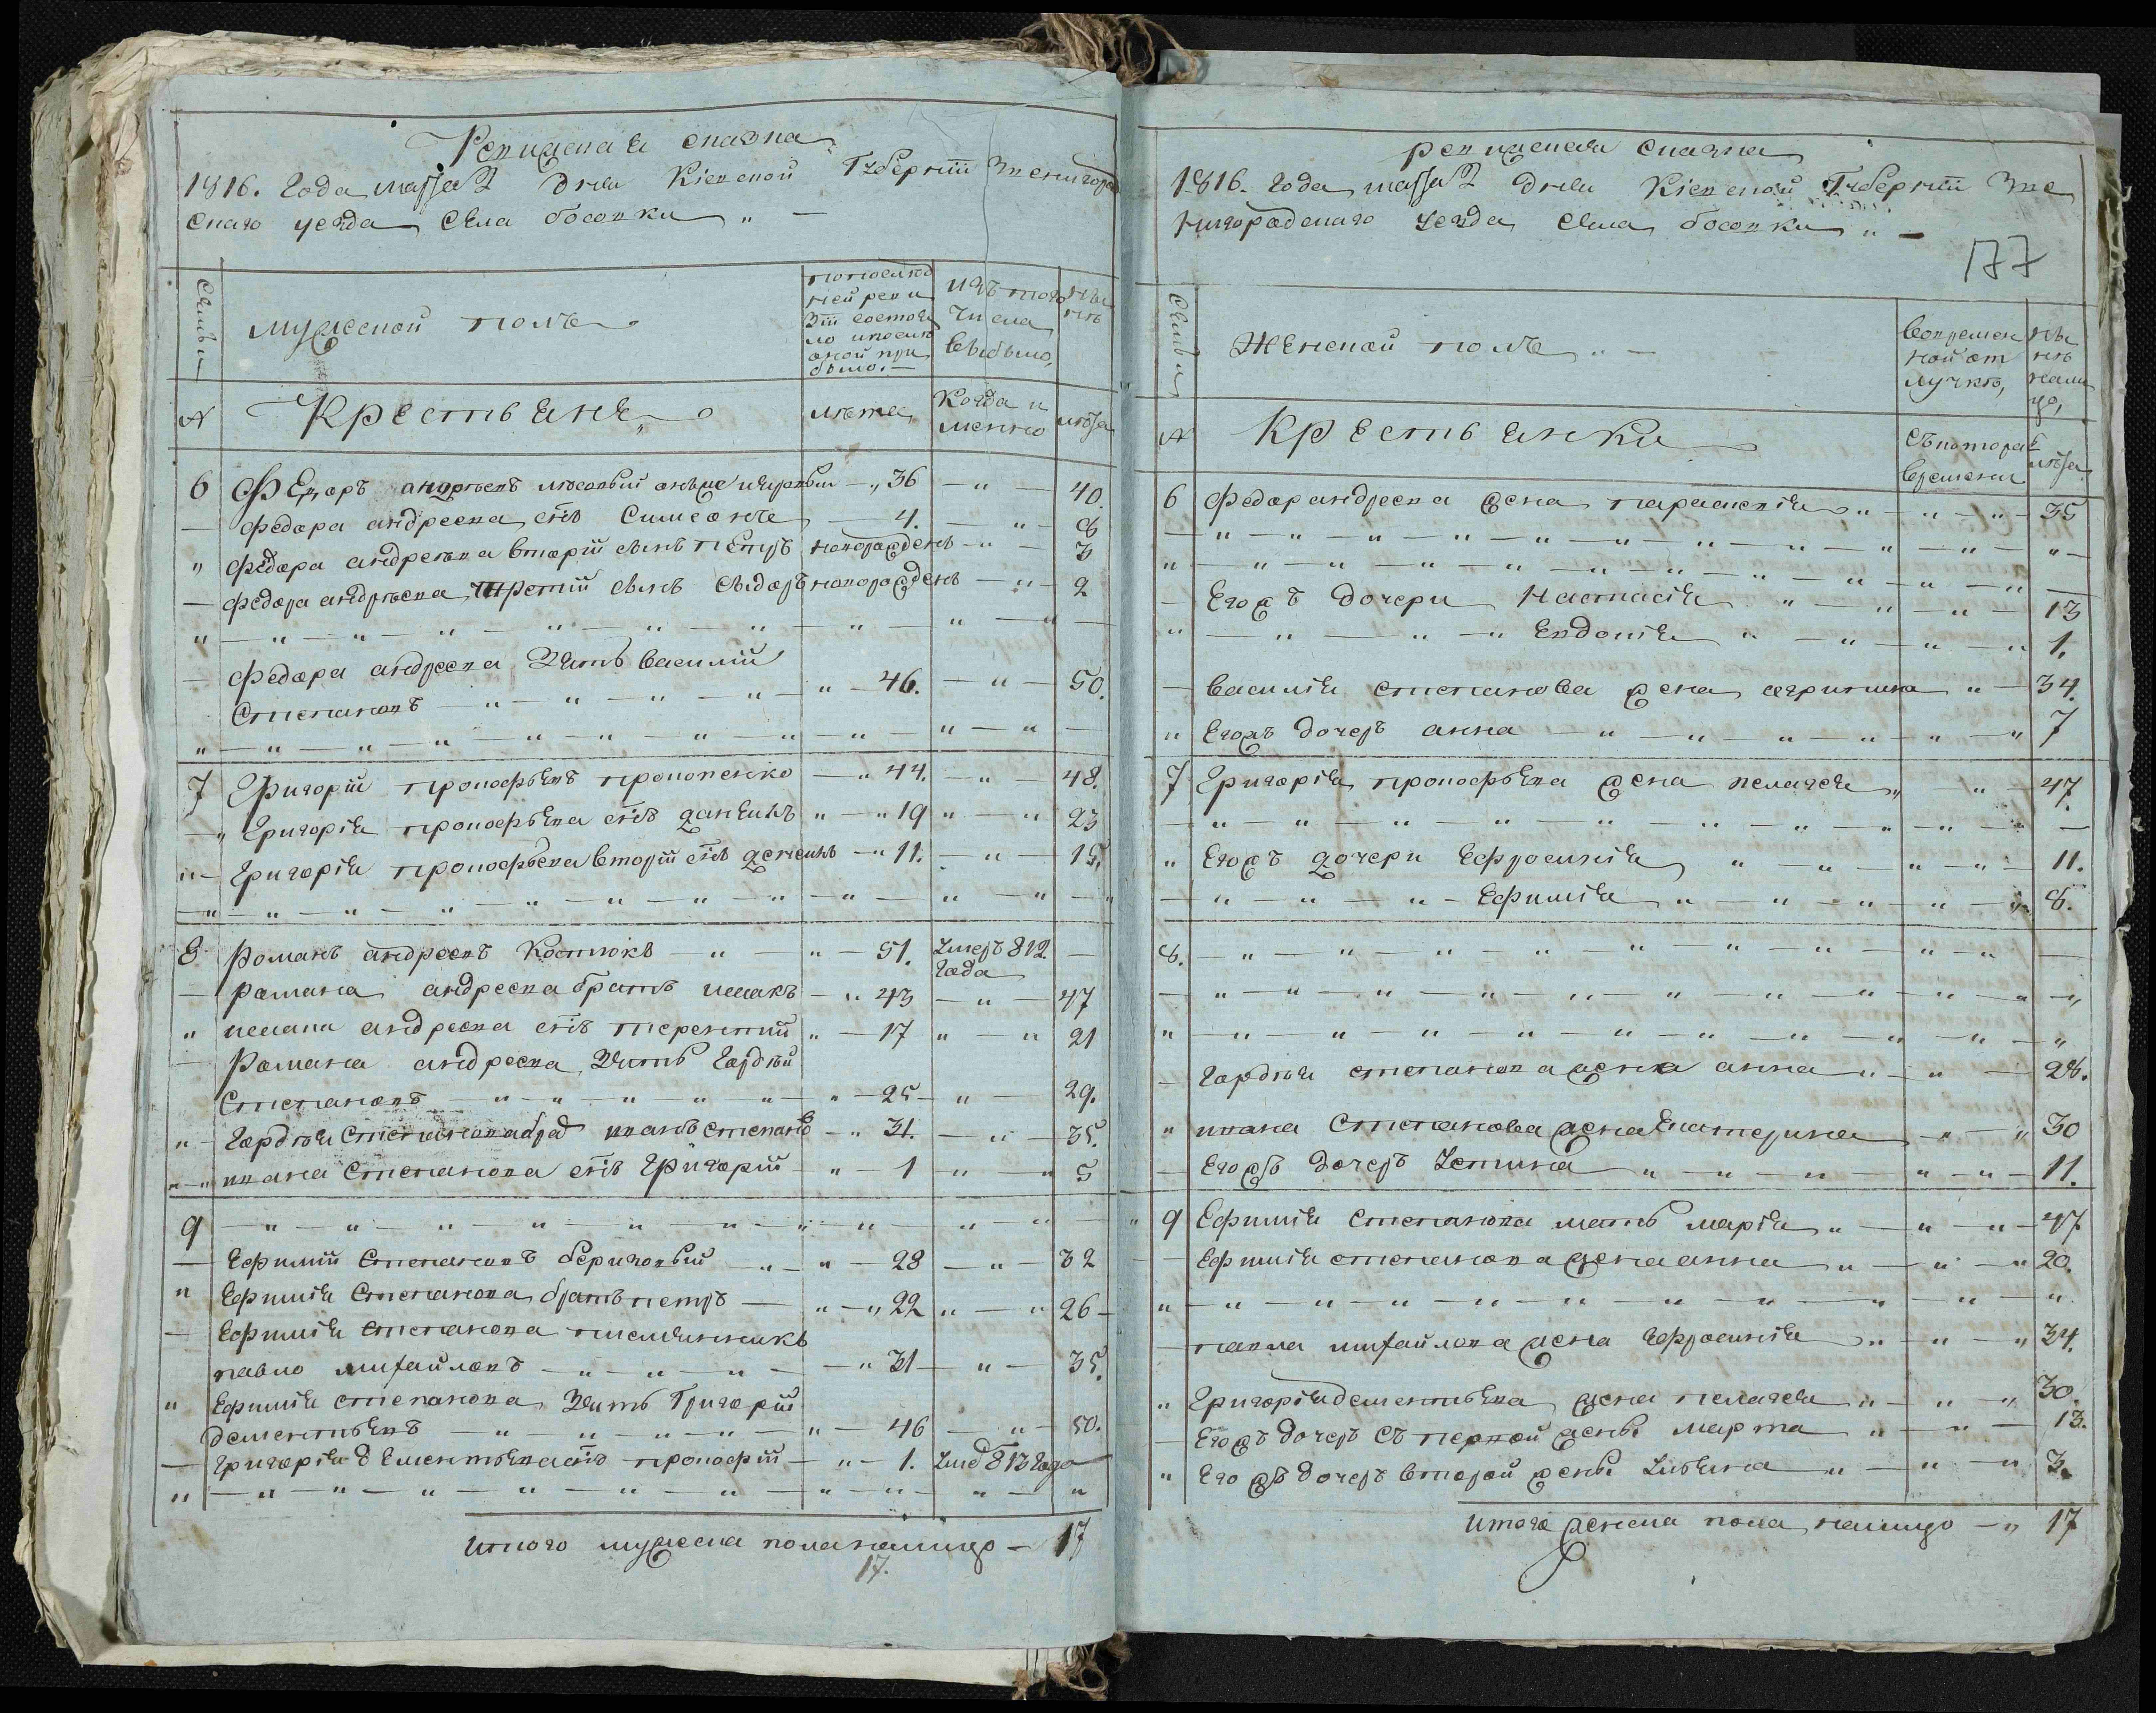 Ревижская сказка
1816. года маия 2 дня Кіевской Губерніи Звенигород
скаго уезда села босовки
семьи
мужеской полъ
по послѣд
ней реви
зіи состоя
ло и после
оной при
было.
изъ того
числа
выбыло,
ны
нѣ
№
Крестьяне
лѣта
Когда и
менно
лѣта
6 Федоръ андрѣевъ 36 40.
Федора андреева снъ Симеонъ 4. 8
Федора андреева вторій сынъ петръ новорожденъ 3
Федора андрѣева третій сынъ сыдоръ новорожденъ 2
Федора андреева зять василій
Степановъ 46. 50.
7 Григорій прокофьевъ прокопенко 44. 48.
Григорія прокофьева снъ данило 19 23
Григорія прокофьева вторій снъ 11. 15.
8 Романъ андреевъ Костюкъ 51. умеръ 812.
года
Романа андреева братъ исаакъ 43 47
исаака андреева снъ терентий 17 21
Романа андреева зять Гордѣй
Степановъ 25 29.
Гордѣя Степанова брат иванъ степановъ 31. 35.
ивана Степанова снъ Григорій 1 5
9
Ефимій Степановъ береговый 28 32
Ефимія Степанова братъ петръ 22 26
Ефимія Степанова племянникъ
павло михайловъ 31 35.
Ефимія степанова зять Григорій
дементьевъ 46 50.
Григорія дементьева снъ прокофій 1. 813 года
итого мужеска пола налицо 17
17.
ревижская сказка
1816. года маия 2 дня Кіевской Губерніи Зве
нигородскаго уезда села босовки
177
семьи
Женской полъ
во времен
ной от
лучкѣ,
ны
нѣ
нали
цо,
№
Крестьянки
съ котораго
времени
лѣта
6 Федор андреева жена параскевія 35
Егожъ дочери Настасія 13
Евдокія 1.
Василия степанова жена 34.
Егожъ дочеръ анна 7
7 Григорія прокофьева жена пелагея 47
Егожъ дочери Ефросинія 11.
Ефимія 8.
8.
Гордѣя степанова жена анна 28.
ивана Степанова жена Екатерина 30
Егожъ дочеръ Устина 11.
9 Ефимія Степанова мать марія 47
Ефимія степанова жена анна 20.
павла михайлова жена Ефросинія 34.
Григорія дементьева жена пелагея 30.
Егожъ дочеръ съ первой жены марта 13.
Егожъ дочеръ второй жены 3.
итого женска пола налицо 17